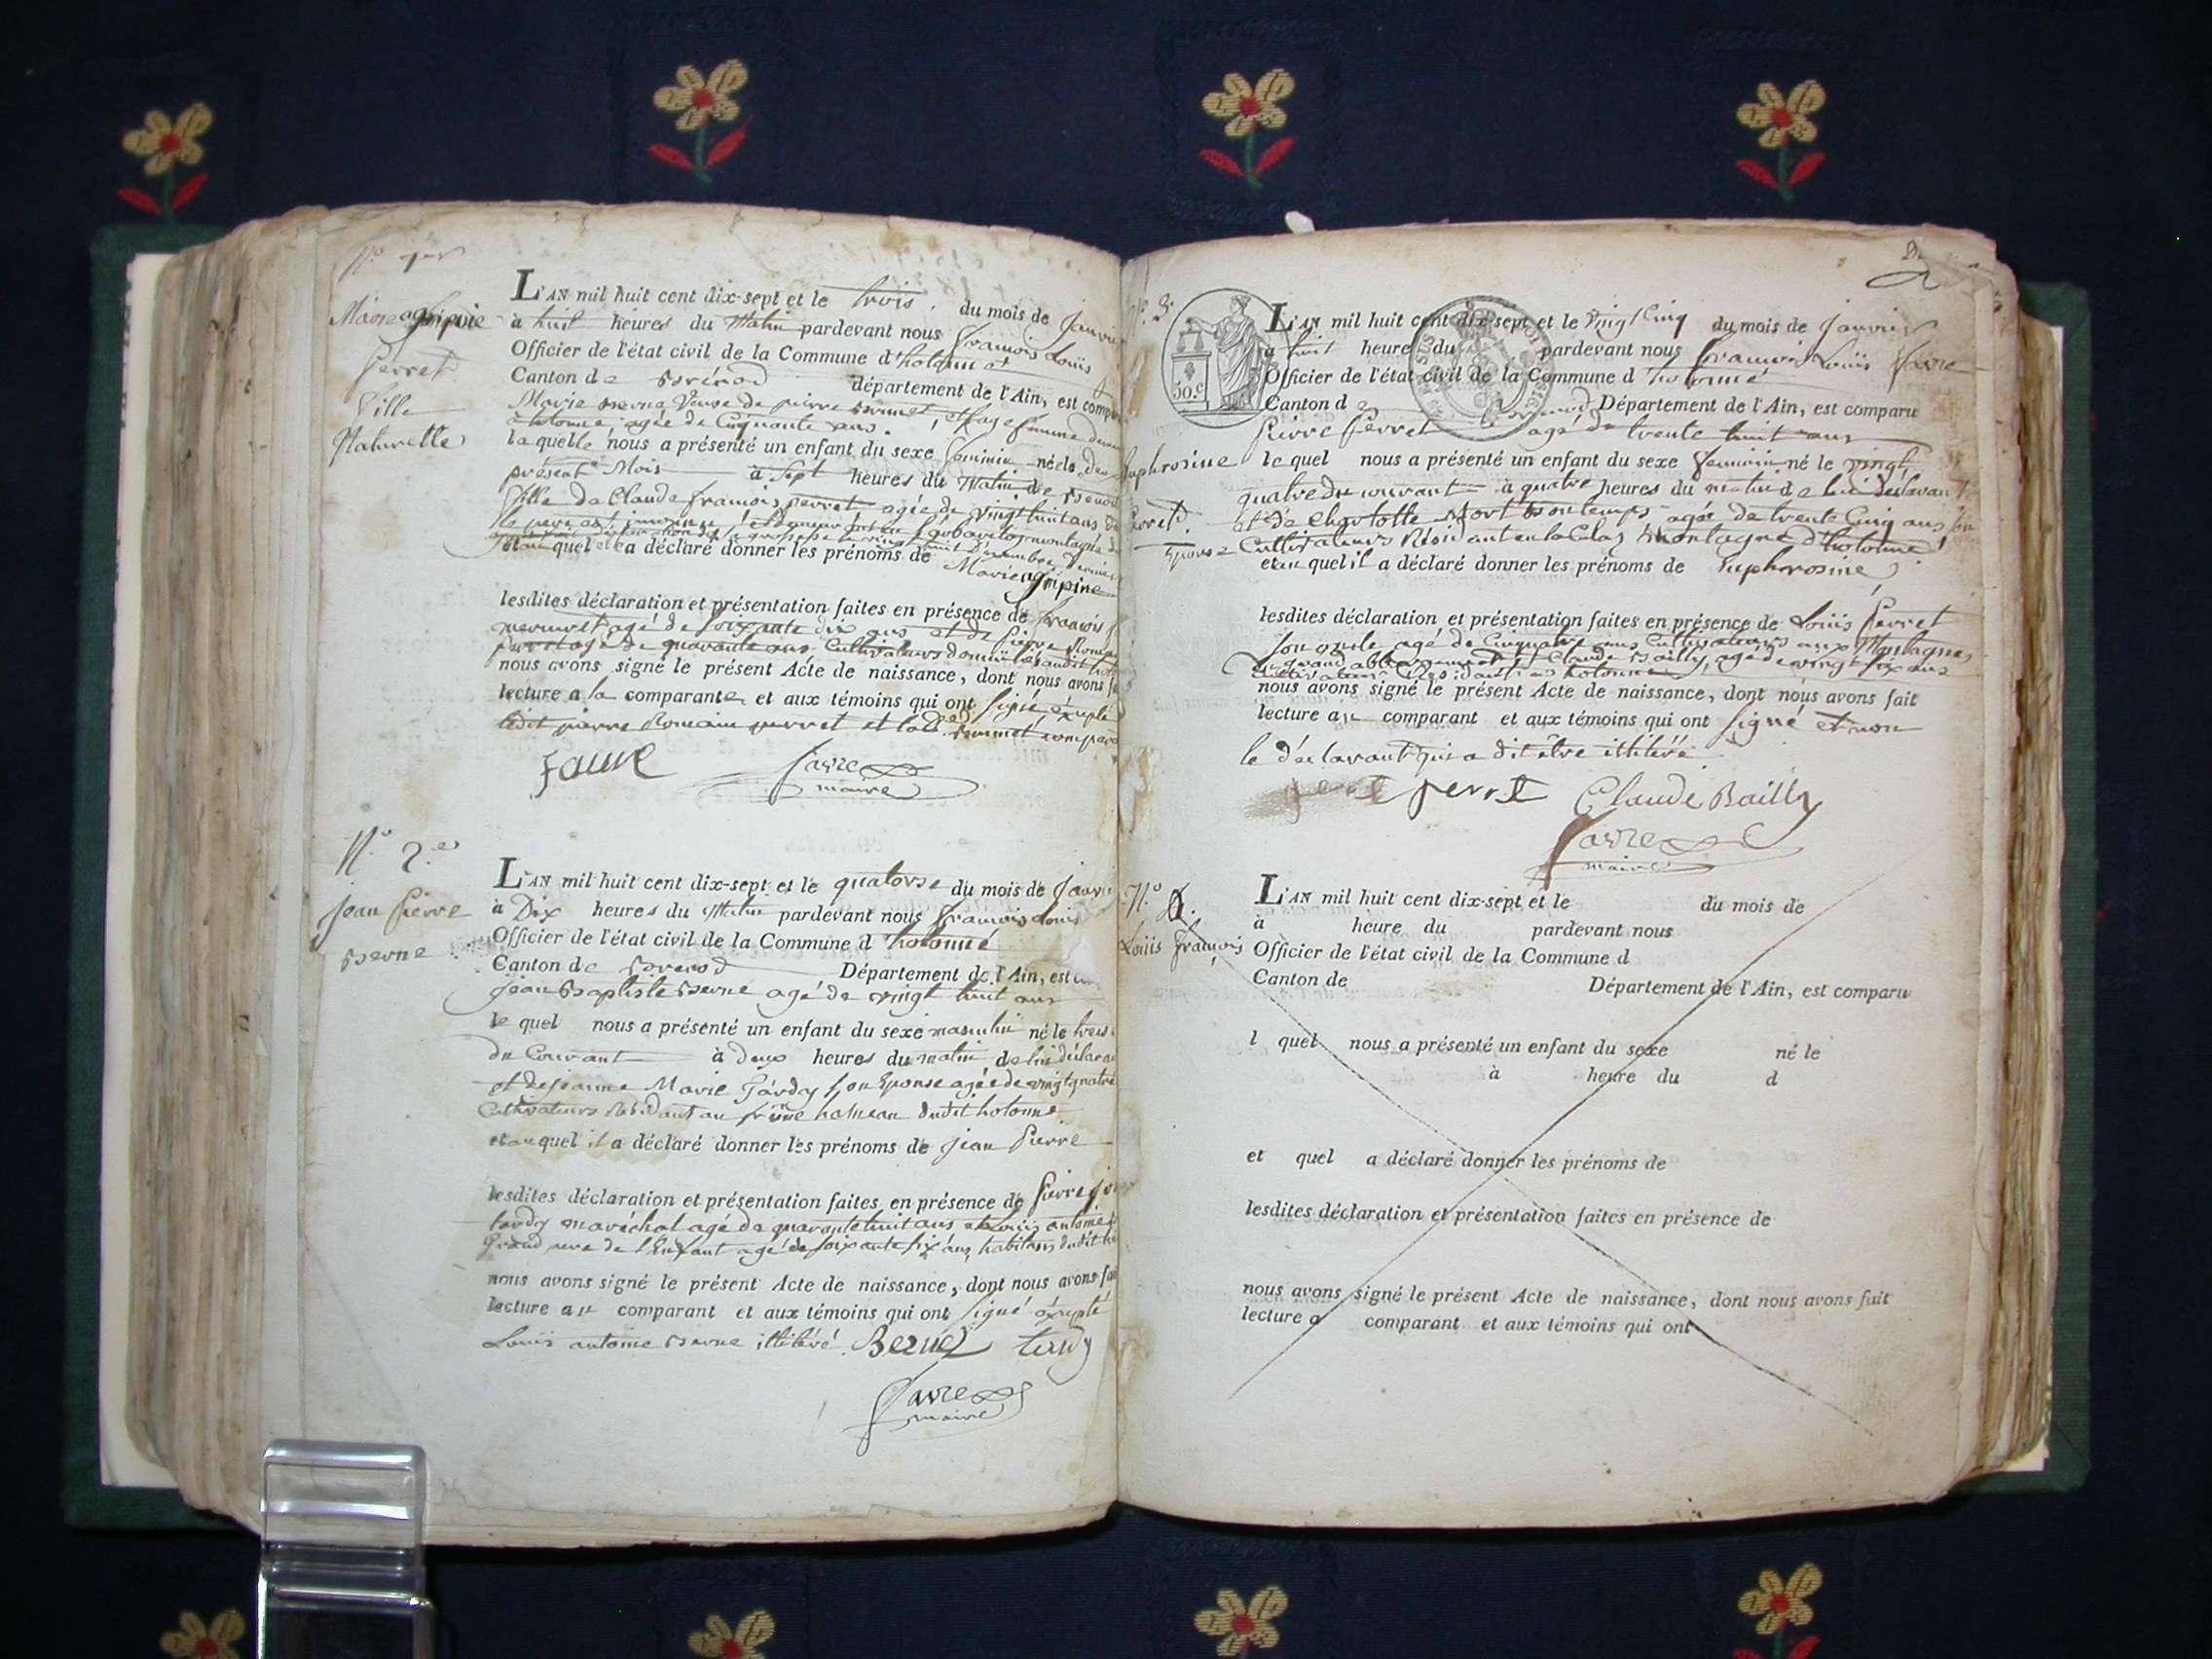 N.° 1er
Marie agripine
Perret
fille
Naturelle
L'AN mil huit cent dix-sept et le trois du mois de Janvier
à huit heures du Matin pardevant nous francois Louis
Officier de l'état civil de la Commune d'hotonne
Canton de Brénod département de l'Ain, est comparu
Marie Berne Veuve de pierre Brunet, et sage femme
à hotonne, agée de Cinquante ans.
la quelle nous a présenté un enfant du sexe feminin né le deux
présent Mois à Sept heures du Matin de
fille de Claude francois perret agée de vingt huit ans
et auquel elle a déclaré donner les prénoms de
Marie agripine
lesdites déclaration et présentation faites en présence de francois
agé de soixante dix ans et de Pierre Romain
perret agé de quarante ans Cultivateurs domiciliés audit
nous avons signé le présent Acte de naissance, dont nous avons
lecture a la comparante et aux témoins qui ont signé éxcepté
ledit pierre Romain perret et lad. Brunet comparante
favre favre
maire
N.° 2.e
jean Pierre
Berne
L'AN mil huit cent dix-sept et le quatorse du mois de Janvier
à Dix heures du Matin pardevant nous francois Louis
Officier de l'état civil de la Commune d hotonne
Canton de Brenod Département de l'Ain, est
jean Baptiste Berne agé de vingt huit ans
le quel nous a présenté un enfant du sexe masculin né le
du Courant à deux heures du matin de lui déclarant
et de jeanne Marie Tardy son Epouse agée de vingt quatre
Cultivateurs Résidant au hameau dudit hotonne
et auquel il a déclaré donner les prénoms de jean Pierre
lesdites déclaration et présentation faites en présence de Pierre
tardy maréchal agé de quarante huit ans et Louis antoine
Grand pere de l'Enfant agé de soixante six ans, habitans dudit
nous avons signé le présent Acte de naissance, dont nous avons fait
lecture au comparant et aux témoins qui ont signé éxcepté
Louis antoine Berne illitéré. Berne tardy
favre
maire
N.° 3.
Euphrosine
Perret
50.c
L'AN mil huit cent dix-sept et le vingt Cinq du mois de Janvier
à huit heure du pardevant nous francois Louis favre
Officier de l'état civil de la Commune d hotonne
Canton de Brenod Département de l'Ain, est comparu
Pierre Perret agé de trente huit ans
le quel nous a présenté un enfant du sexe feminin né le vingt
quatre du courant à quatre heures du matin de lui déclarant
et de Charlotte Mort Bontemps agée de trente Cinq ans son
Epouse Cultivateurs Résidant en la Culaz Montagne d'hotonne
et au quel il a déclaré donner les prénoms de Euphrosine
lesdites déclaration et présentation faites en présence de Louis Perret
son oncle agé de Cinquante ans Cultivateurs aux Montagnes
Claude Bailly, agé de vingt six ans
Cultivateurs Résidant a hotonne
nous avons signé le présent Acte de naissance, dont nous avons fait
lecture au comparant et aux témoins qui ont signé et non
le déclarant qui a dit être illitéré
perret Claude Bailly
favre
maire
N.°
Louis françois
L'AN mil huit cent dix-sept et le du mois de
à heure du pardevant nous
Officier de l'état civil de la Commune d
Canton de Département de l'Ain, est comparu
l quel nous a présenté un enfant du sexe né le
à heure du d
et quel a déclaré donner les prénoms de
lesdites déclaration et présentation faites en présence de
nous avons signé le présent Acte de naissance, dont nous avons fait
lecture a comparant et aux témoins qui ont